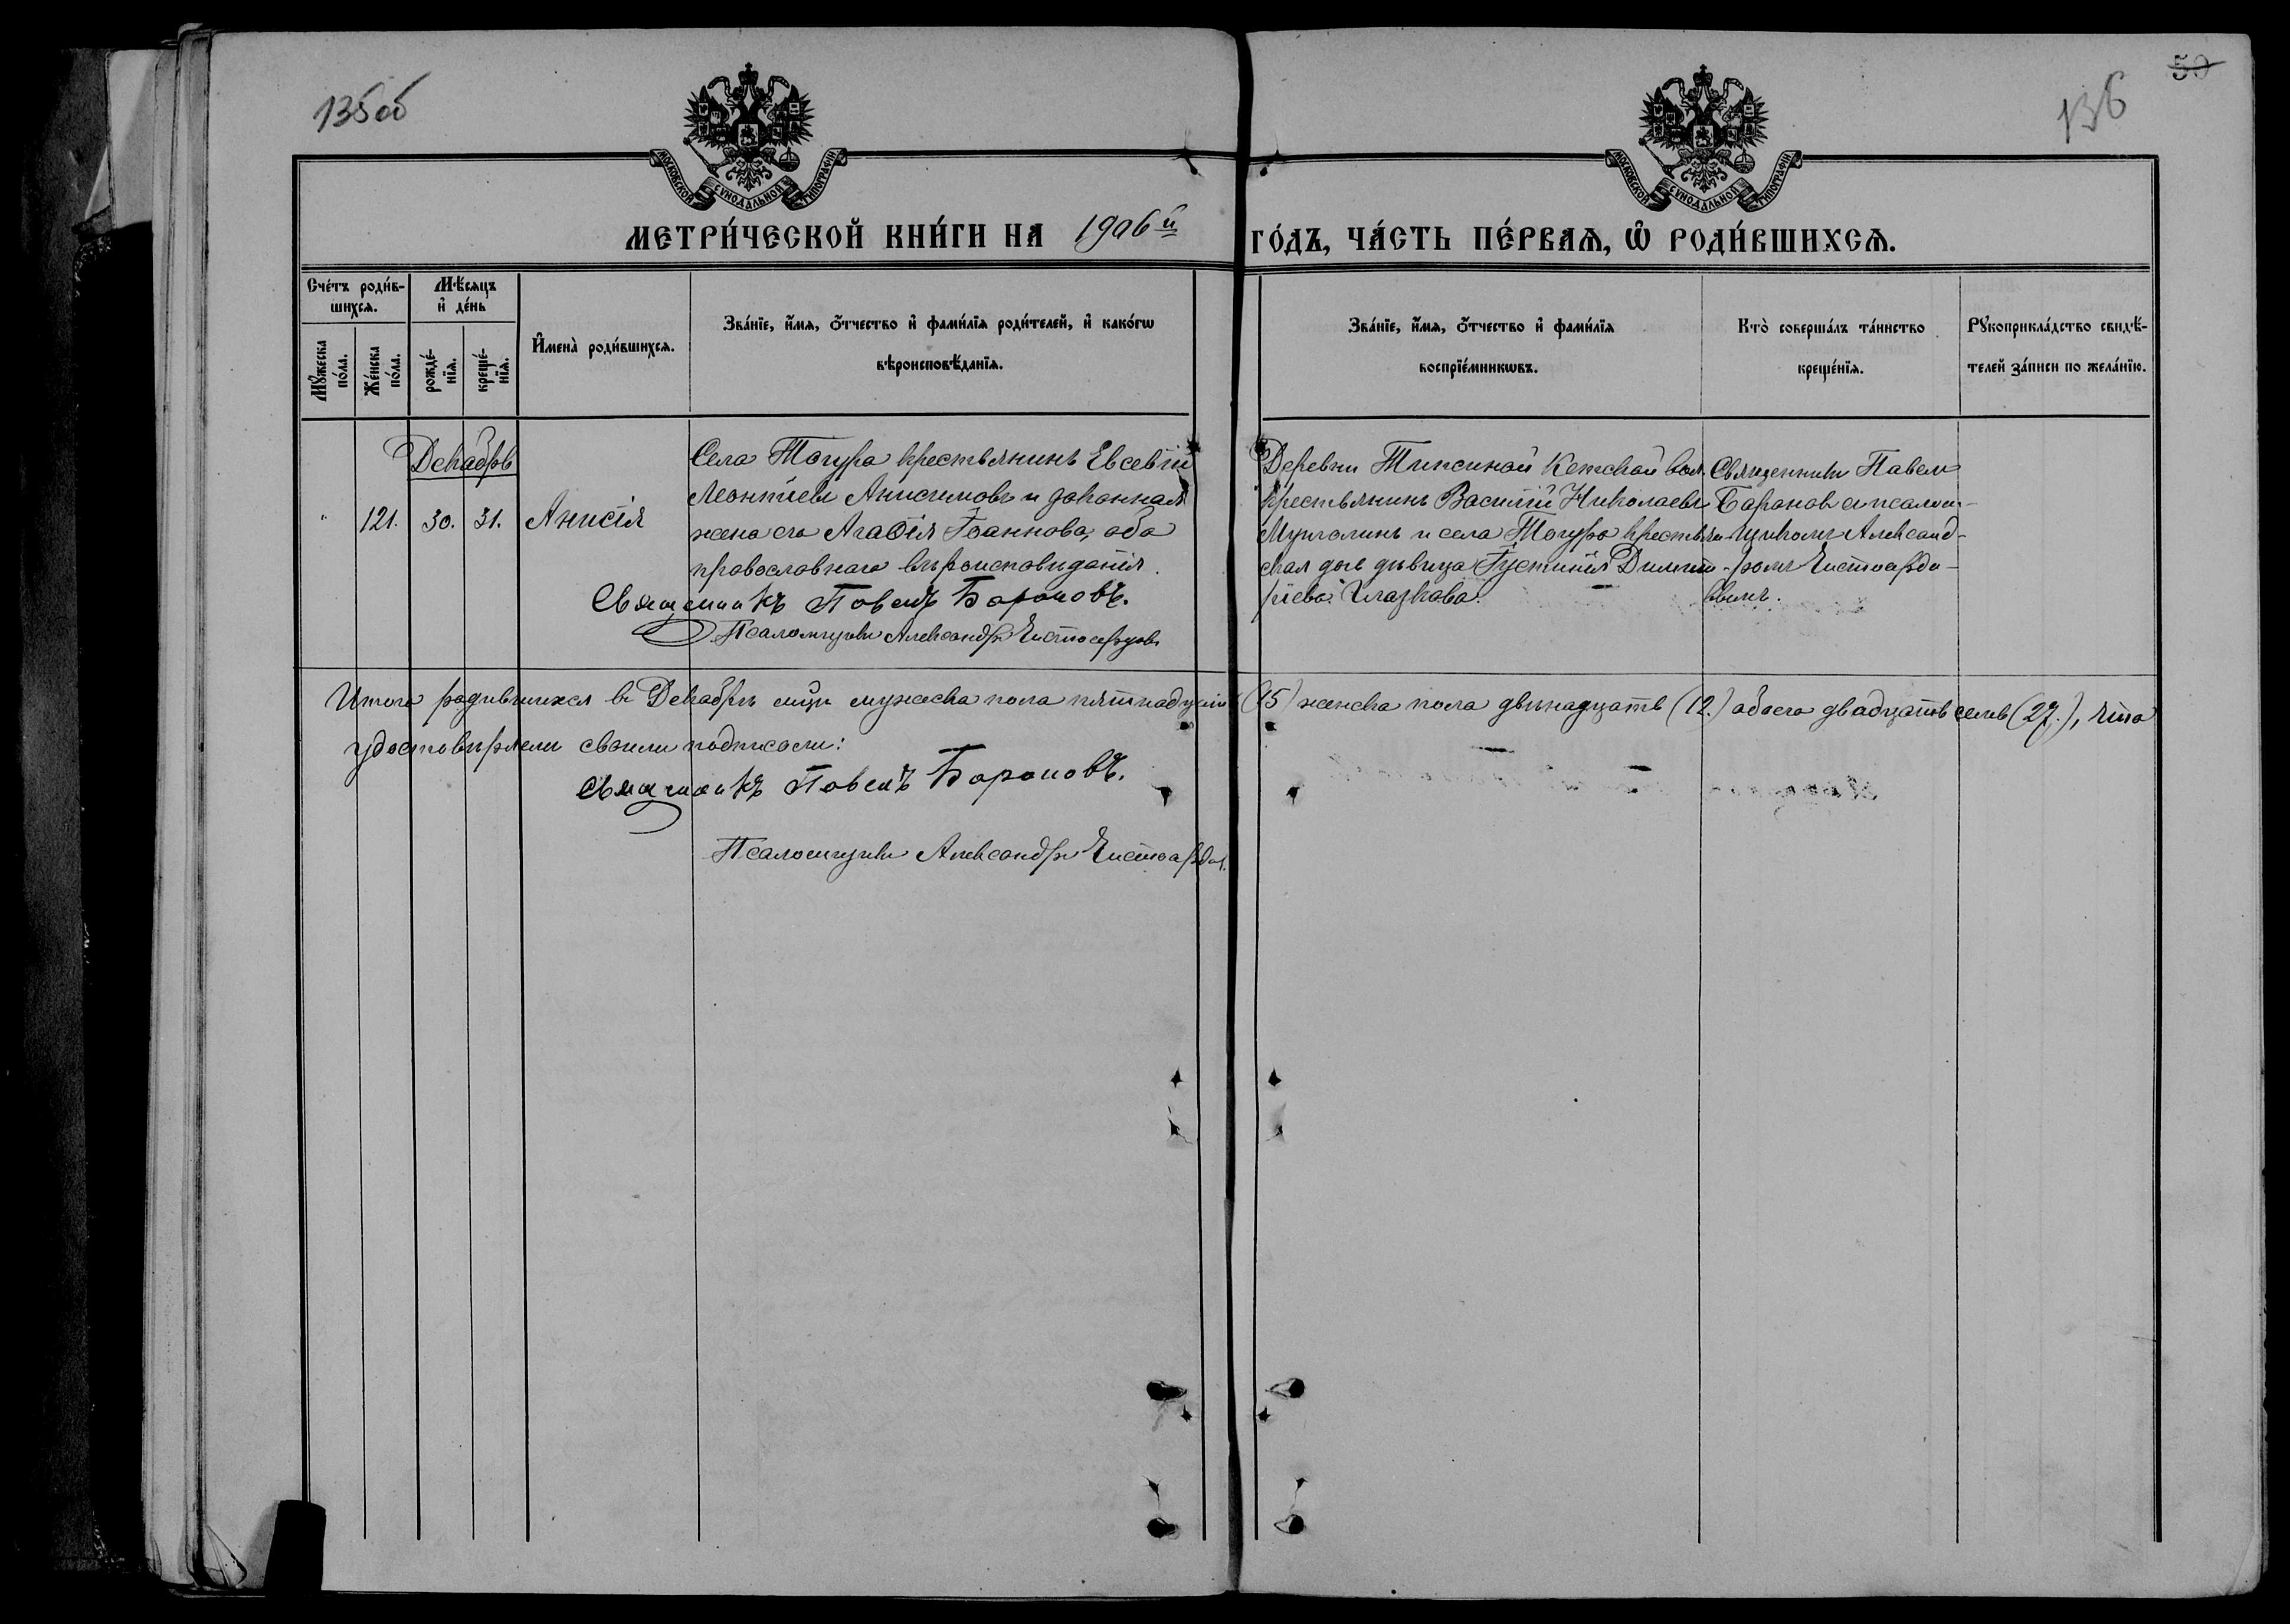 135об
136
50
МОСКОВСКОЙ СѴНОДАЛЬНОЙ ТИПОГРАФІИ
МОСКОВСКОЙ СѴНОДАЛЬНОЙ ТИПОГРАФІИ
МЕТРИ́ЧЕСКОЙ КНИ́ГИ НА 1906й
ГО́ДЪ, ЧА́СТЬ ПЕ́РВАѦ, Ѡ РОДИ́ВШИХСѦ.
Сче́тъ роди́в-
шихсѧ.
Мѣсяцъ
и҆ де́нь
Мꙋжеска
по́ла.
Же́нска
по́ла.
рожде́-
нїѧ.
креще́-
нїѧ.
И҆мена̀ роди́вшихсѧ.
Зва́нїе, и҆́мѧ, ѻ҆́тчество и҆ фами́лїѧ роди́телей, и҆ како́гѡ
вѣроисповѣ́данїѧ.
Зва́нїе, и҆́мѧ, ѻ҆́тчество и҆ фами́лїѧ
воспрїе́мникѡвъ.
Кто̀ соверша́лъ та́инство
креще́нїѧ.
Рꙋкоприкла́дство свидѣ́-
телей за́писи по жела́нїю.
Декабрь
" 121. 30. 31. Анисія
Села Тогура крестьянинъ Евсевій
Леонтіевъ Анисимовъ и законная
жена его Агаѳія Іоаннова, оба
православнаго вѣроисповѣданія.
Священникъ Павелъ Барановъ.
Псаломщикъ Александръ Чистосердовъ
Деревни Типсиной Кетской вол.
крестьянинъ Василій Николаевъ
Мурголинъ и села Тогура крестьян-
ская дочь дѣвица Іустинія Димит-
ріева Глазкова.
Священникъ Павелъ
Барановъ съ псалом-
щикомъ Александ-
ромъ Чистосердо-
вымъ.
Итого родившихся въ Декабрѣ мцѣ мужеска пола пятнадцать (15) женска пола двѣнадцать (12.) обоего двадцать семь (27.), что
удостовѣряемъ своими подписями:
Священникъ Павелъ Барановъ.
Псаломщикъ Александръ Чистосердов.